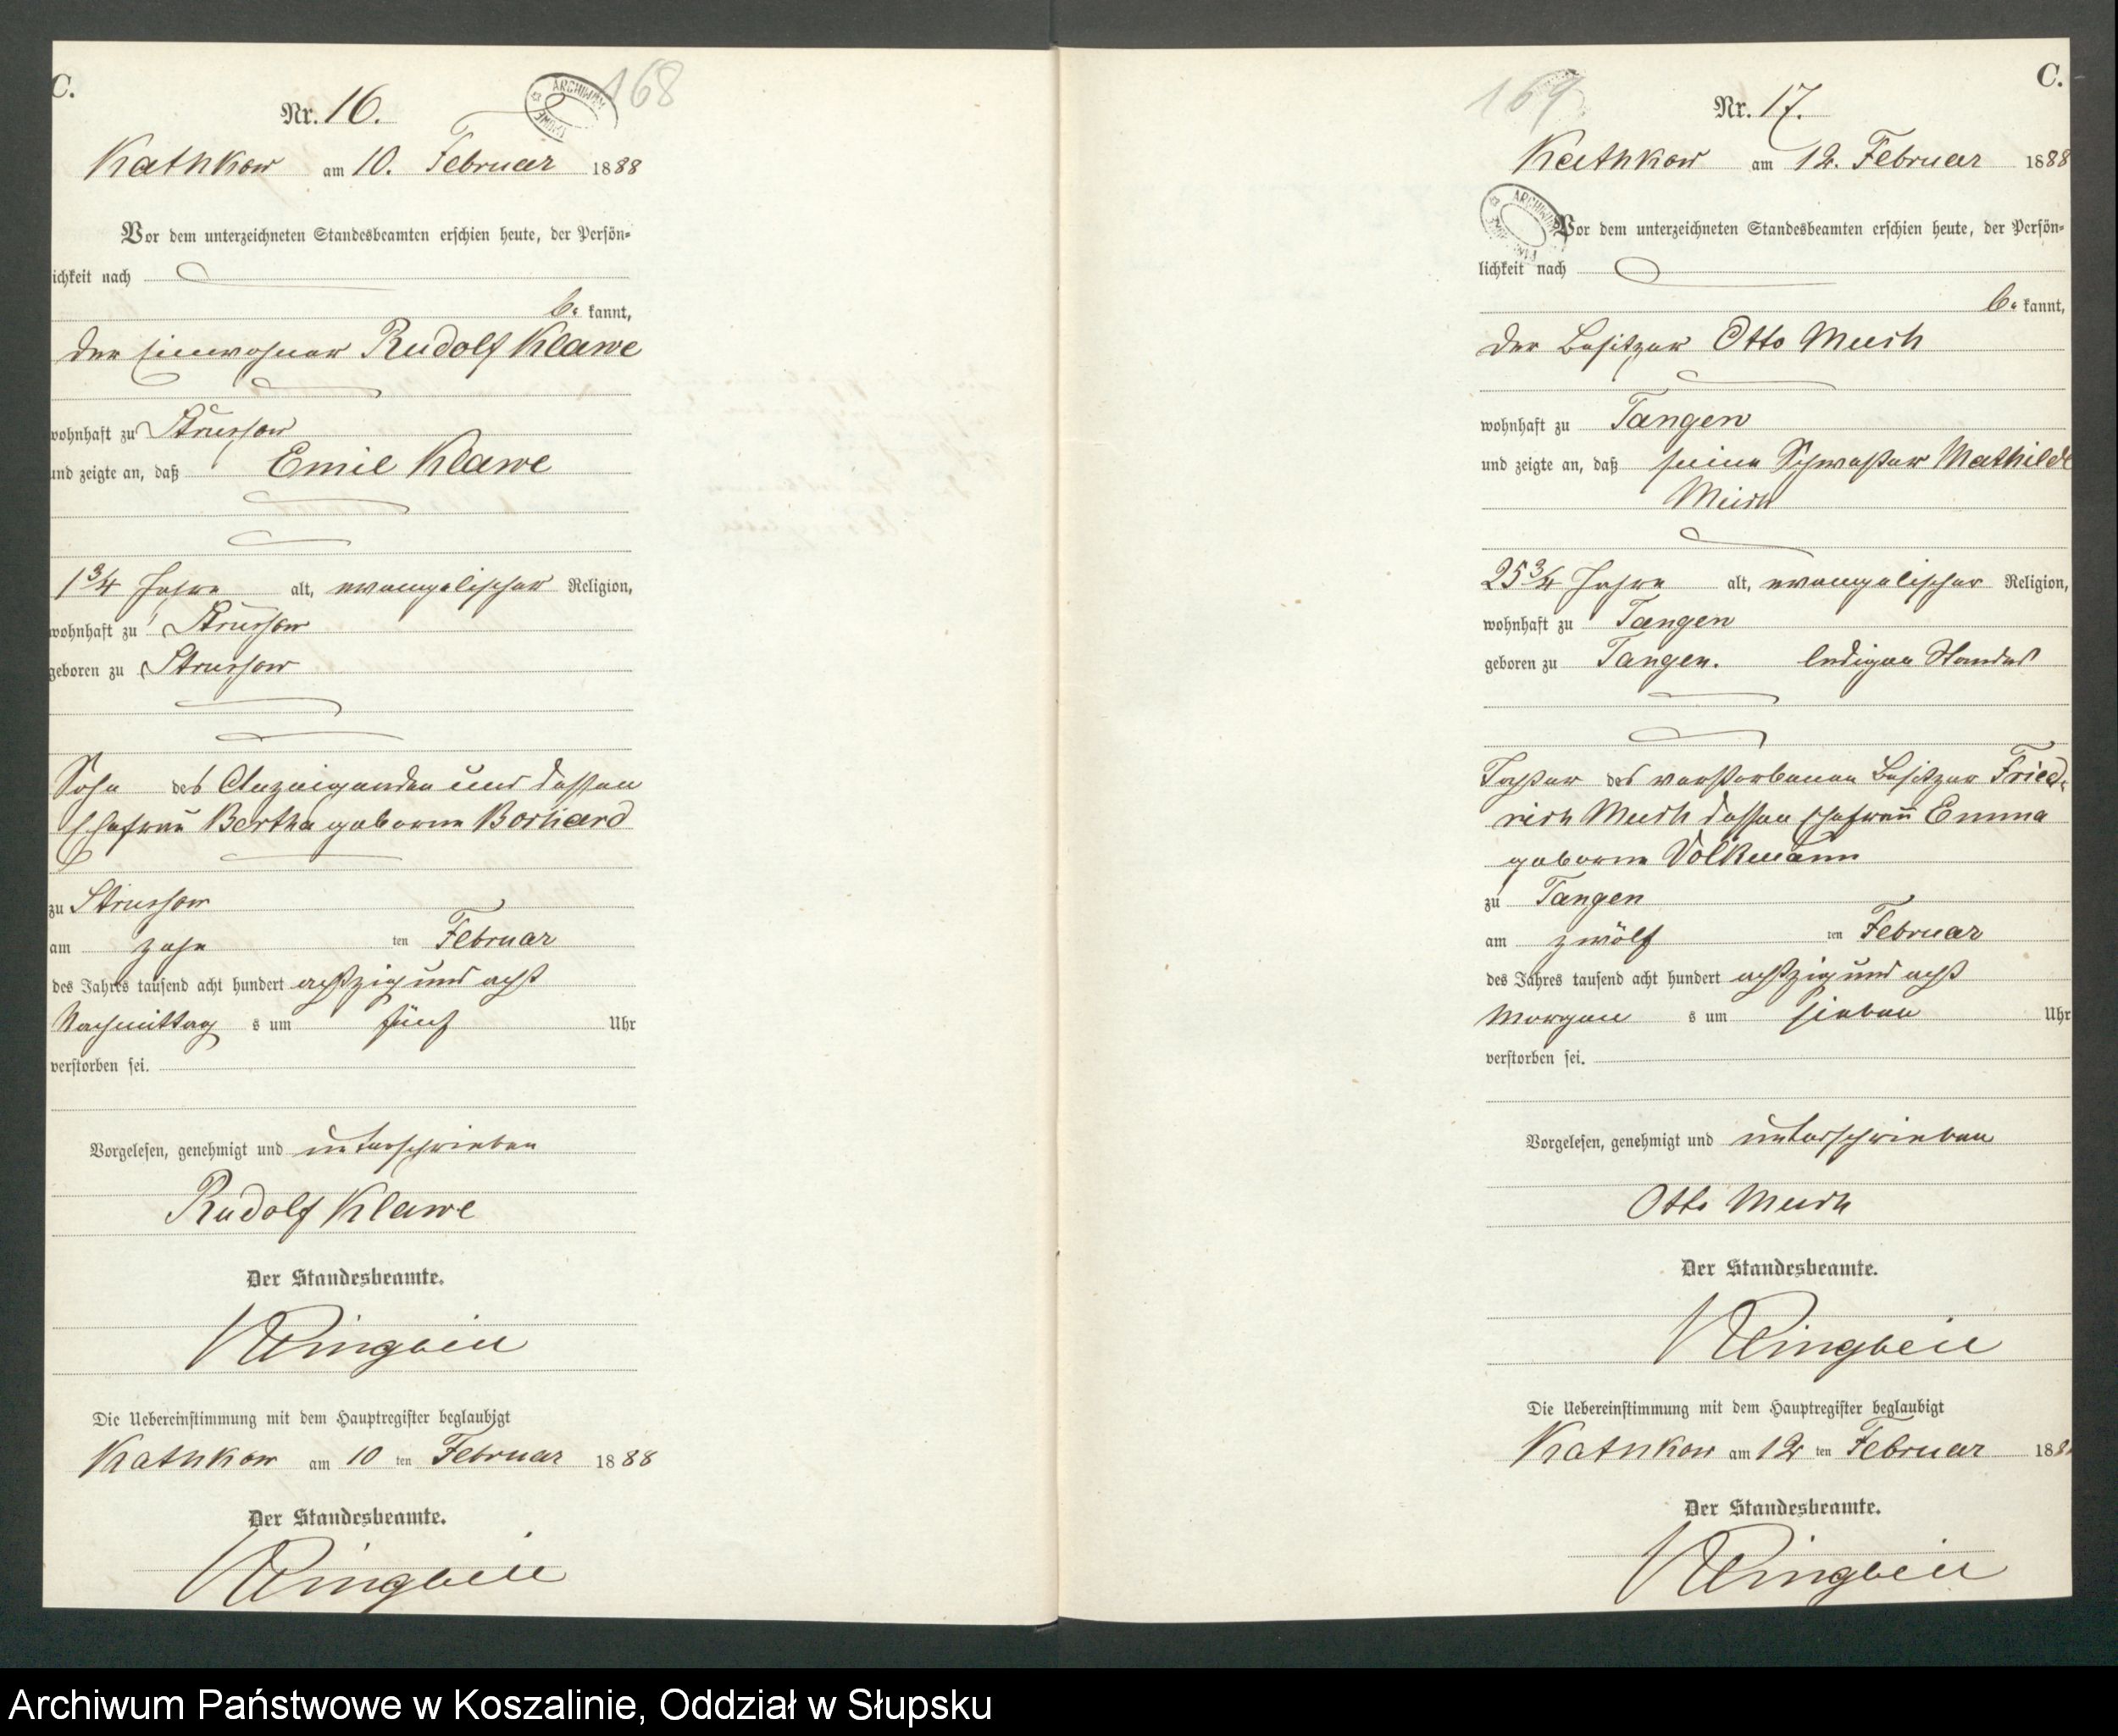 C.
Nr. 16.
168
Kathkow am 10. Februar 1888
Vor dem unterzeichneten Standesbeamten erschien heute, der Persön-
ichkeit nach
be kannt,
der Einwohner Rudolf Klawe
wohnhaft zu Strussow
und zeigte an, daß Emil Klawe
1 3/4 Jahre alt, evangelischer Religion,
wohnhaft zu Strussow
geboren zu Strussow
Sohn des Anzeigenden und dessen
Ehefrau Bertha geborne Borchard
zu Strussow
am zehn ten Februar
des Jahres tausend acht hundert achtzig und acht
Nachmittag s um fünf Uhr
verstorben sei.
Vorgelesen, genehmigt und unterschrieben
Rudolf Klawe
Der Standesbeamte.
Klingbeil
Die Uebereinstimmung mit dem Hauptregister beglaubigt
Kathkow am 10 ten Februar 1888
Der Standesbeamte.
Klingbeil
169
C.
Nr. 17.
Kathkow am 12. Februar 1888
ARCHIWUM
Vor dem unterzeichneten Standesbeamten erschien heute, der Persön-
lichkeit nach
be kannt,
der Besitzer Otto Much
wohnhaft zu Tangen
und zeigte an, daß seine Schwester Mathilde
Much
25 3/4 Jahre alt, evangelischer Religion,
wohnhaft zu Tangen
geboren zu Tangen. ledigen Standes
Tochter des verstorbenen Besitzer Fried-
rich Much dessen Ehefrau Emma
geborne Volkmann
zu Tangen
am zwölf ten Februar
des Jahres tausend acht hundert achtzig und acht
Morgen s um sieben Uhr
verstorben sei.
Vorgelesen, genehmigt und unterschrieben
Otto Much
Der Standesbeamte.
Klingbeil
Die Uebereinstimmung mit dem Hauptregister beglaubigt
Kathkow am 12 ten Februar 188
Der Standesbeamte.
Klingbeil
Archiwum Państwowe w Koszalinie, Oddział w Słupsku